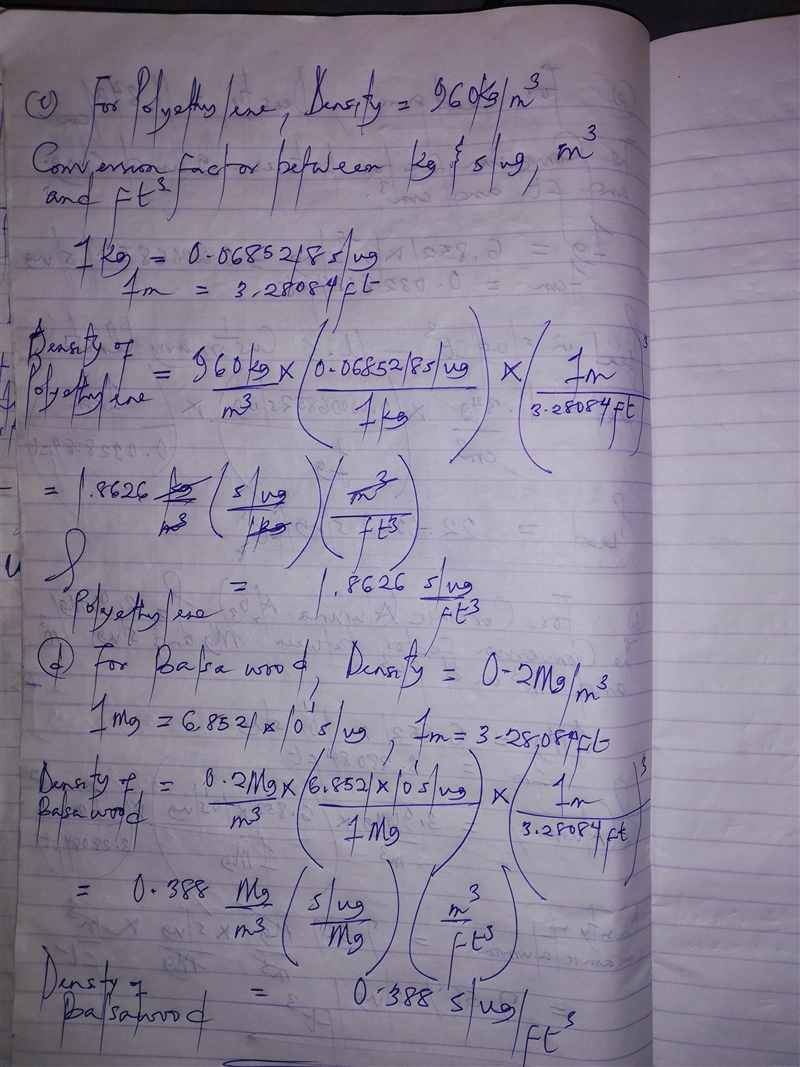 (c) For Polyethylene, Density = 960kg/m³
Conversion factor between kg & slug, m³
and ft³
1kg = 0.0685218slug
1m = 3.28084ft
Density of
Polyethylene = 960kg/m³ × (0.0685218slug/1kg) × (1m/3.28084ft)³
= 1.8626 kg/m³ (slug/1kg) (m³/ft³)
ρ Polyethylene = 1.8626 slug/ft³
(d) For Balsa wood, Density = 0.2Mg/m³
1Mg = 6.8521×10¹slug, 1m = 3.28084ft
Density of
Balsa wood = 0.2Mg/m³ × (6.8521×10¹slug/1Mg) × (1m/3.28084ft)³
= 0.388 Mg/m³ (slug/Mg) (m³/ft³)
Density of
Balsawood = 0.388 slug/ft³